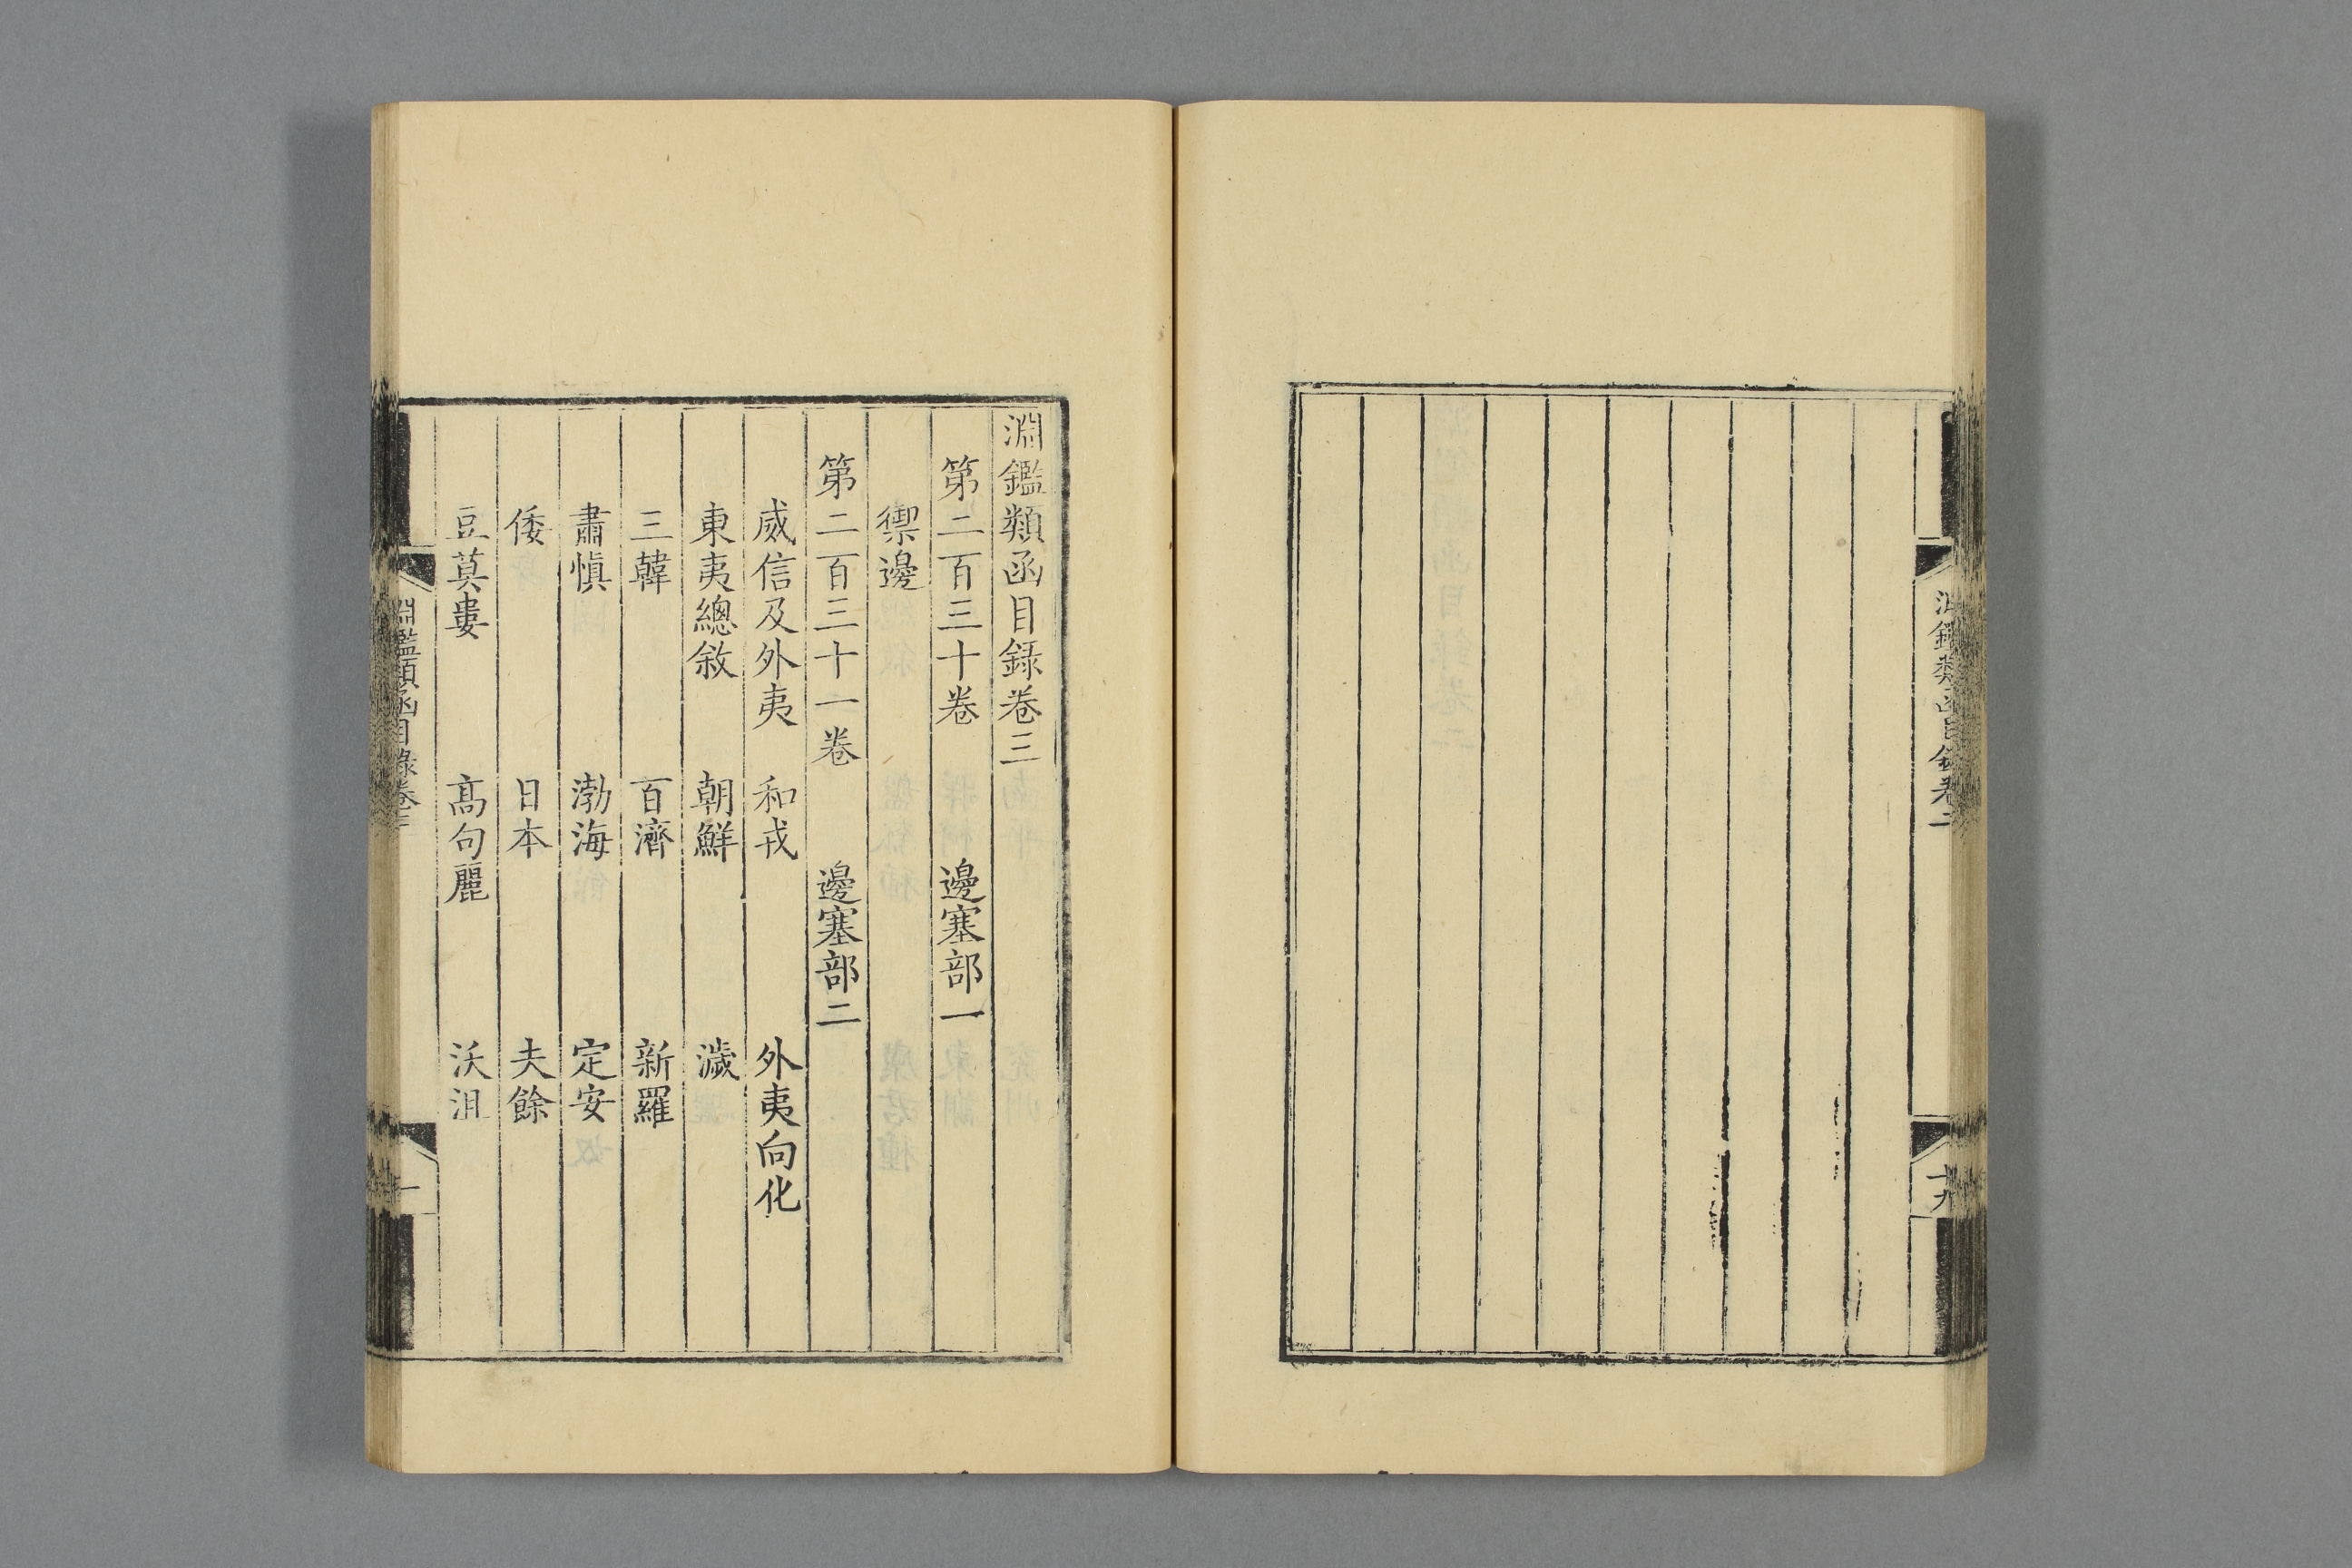 淵鑑類函目録卷二
十九
淵鑑類函目録卷三
第二百三十卷 邊塞部一
禦邊
第二百三十一卷 邊塞部二
威信及外夷 和戎 外夷向化
東夷總敘 朝鮮 濊
三韓 百濟 新羅
肅慎 渤海 定安
倭 日本 夫餘
豆莫婁 高句麗 沃沮
淵鑑類函目錄卷三
一